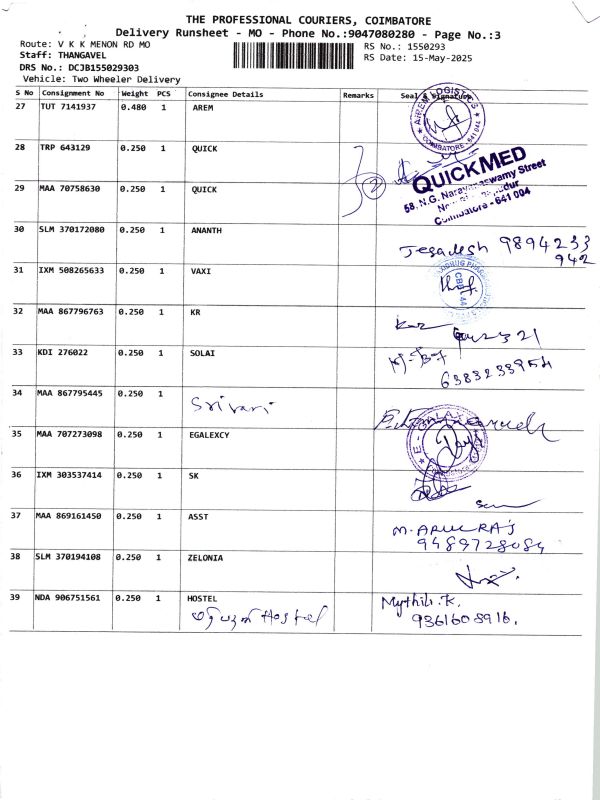 THE PROFESSIONAL COURIERS, COIMBATORE
Delivery Runsheet - MO - Phone No.:9047080280 - Page No.:3
Route: V K K MENON RD MO
RS No.: 1550293
Staff: THANGAVEL
RS Date: 15-May-2025
DRS No.: DCJB155029303
Vehicle: Two Wheeler Delivery
S No Consignment No Weight PCS Consignee Details Remarks Seal & Signature
27 TUT 7141937 0.480 1 AREM
AIREM LOGISTICS
COIMBATORE - 641 044
28 TRP 643129 0.250 1 QUICK
2
QUICKMED
58, N.G. Narayanaswamy Street
Coimbatore - 641 004
29 MAA 70758630 0.250 1 QUICK
30 SLM 370172080 0.250 1 ANANTH
Jegadesh 9894233
942
31 IXM 508265633 0.250 1 VAXI
32 MAA 867796763 0.250 1 KR
33 KDI 276022 0.250 1 SOLAI
6383233954
34 MAA 867795445 0.250 1
Srivari
35 MAA 707273098 0.250 1 EGALEXCY
36 IXM 303537414 0.250 1 SK
37 MAA 869161450 0.250 1 ASST
M. ARULRAJ
9489728084
38 SLM 370194108 0.250 1 ZELONIA
39 NDA 906751561 0.250 1 HOSTEL
Hostel
Mythili.K.
9361608916.